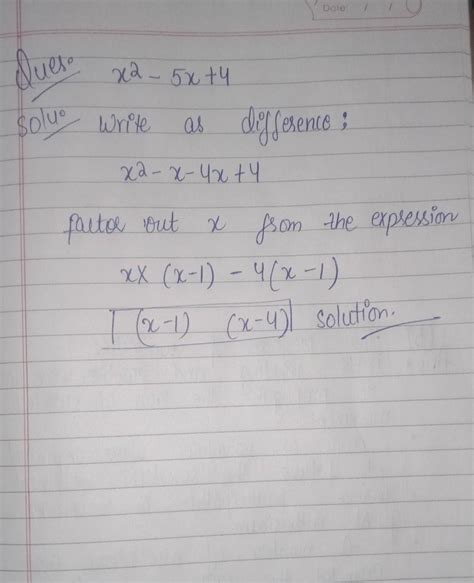 Date: / /
Ques. x2 - 5x+4
Solu. write as difference:
x2 - x - 4x + 4
factor out x from the expression
x× (x-1) - 4(x-1)
(x-1) (x-4) solution.